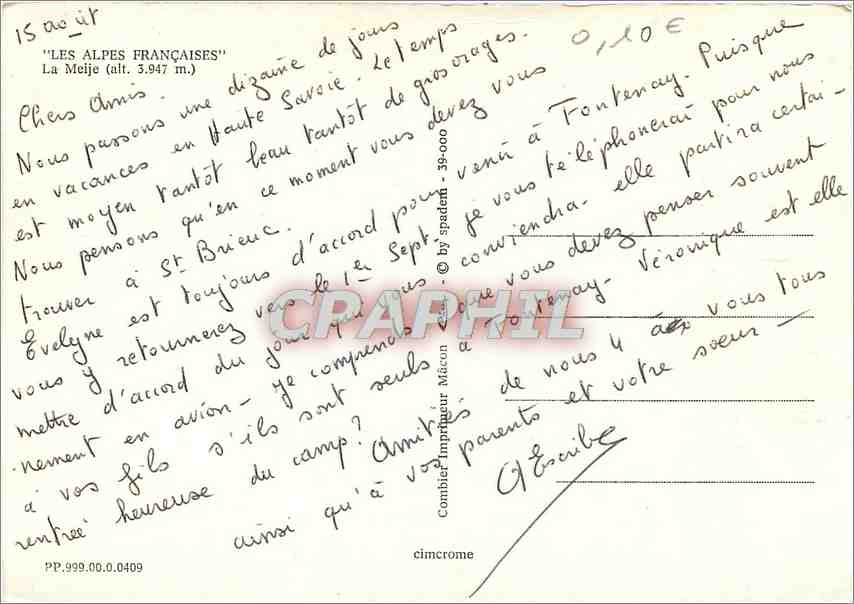 15 août
0,10 €
"LES ALPES FRANÇAISES"
La Meije (alt. 3.947 m.)
Chers Amis.
Nous passons une dizaine de jours
en vacances en Haute Savoie. Le temps
est moyen tantôt beau tantôt de gros orages.
Nous pensons qu'en ce moment vous devez vous
trouver à St Brieuc.
Evelyne est toujours d'accord pour venir à Fontenay. Puisque
vous y retournerez vers le 1er Sept. je vous téléphonerai pour nous
mettre d'accord du jour qui vous conviendra. elle partira certai-
nement en avion - je comprends que vous devez penser souvent
à vos fils s'ils sont seuls à Fontenay - Véronique est elle
rentrée heureuse du camp? Amitiés de nous 4 à vous tous
ainsi qu'à vos parents et votre sœur -
Combier Imprimeur Mâcon - © by spadem - 39-000
CPAPHIL
cimcrome
PP.999.00.0.0409